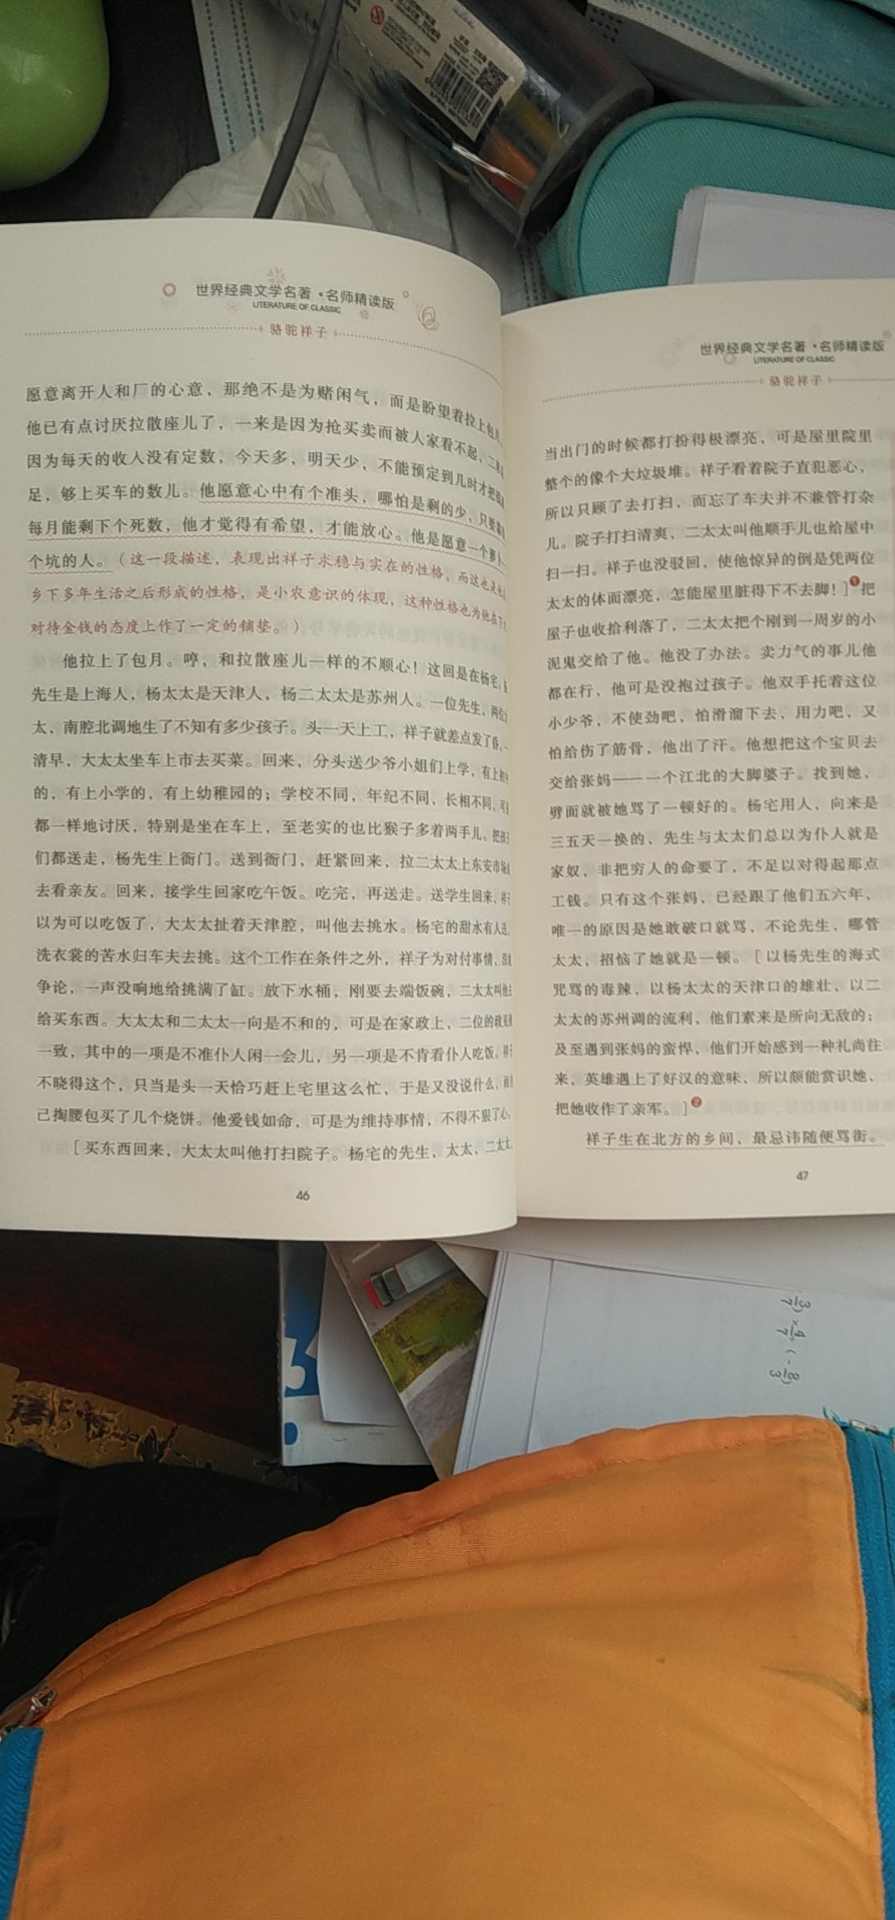 世界经典文学名著·名师精读版
LITERATURE OF CLASSIC
骆驼祥子
愿意离开人和厂的心意，那绝不是为赌闲气，而是盼望着拉上包月
他已有点讨厌拉散座儿了，一来是因为抢买卖而被人家看不起，二
因为每天的收入没有定数，今天多，明天少，不能预定到几时才把
足，够上买车的数儿。他愿意心中有个准头，哪怕是剩的少，只要
每月能剩下个死数，他才觉得有希望，才能放心。他是愿意一个萝卜
个坑的人。（这一段描述，表现出祥子求稳与实在的性格，而这也是
乡下多年生活之后形成的性格，是小农意识的体现，这种性格也为他在
对待金钱的态度上作了一定的铺垫。）
他拉上了包月。哼，和拉散座儿一样的不顺心！这回是在杨宅。
先生是上海人，杨太太是天津人，杨二太太是苏州人。一位先生，两位
太，南腔北调地生了不知有多少孩子。头一天上工，祥子就差点发了昏。
清早，大太太坐车上市去买菜。回来，分头送少爷小姐们上学，有上初
的，有上小学的，有上幼稚园的；学校不同，年纪不同，长相不同，可
都一样地讨厌，特别是坐在车上，至老实的也比猴子多着两手儿。把孩
们都送走，杨先生上衙门。送到衙门，赶紧回来，拉二太太上东安市场
去看亲友。回来，接学生回家吃午饭。吃完，再送走。送学生回来，祥
以为可以吃饭了，大太太扯着天津腔，叫他去挑水。杨宅的甜水有人送，
洗衣裳的苦水归车夫去挑。这个工作在条件之外，祥子为对付事情，没
争论，一声没响地给挑满了缸。放下水桶，刚要去端饭碗，二太太叫他
给买东西。大太太和二太太一向是不和的，可是在家政上，二位的政见
一致，其中的一项是不准仆人闲一会儿，另一项是不肯看仆人吃饭。祥
不晓得这个，只当是头一天恰巧赶上宅里这么忙，于是又没说什么，而
己掏腰包买了几个烧饼。他爱钱如命，可是为维持事情，不得不狠了心。
［买东西回来，大太太叫他打扫院子。杨宅的先生，太太，二太太
46
世界经典文学名著·名师精读版
LITERATURE OF CLASSIC
骆驼祥子
当出门的时候都打扮得极漂亮，可是屋里院里
整个的像个大垃圾堆。祥子看着院子直犯恶心，
所以只顾了去打扫，而忘了车夫并不兼管打杂
儿。院子打扫清爽，二太太叫他顺手儿也给屋中
扫一扫。祥子也没驳回，使他惊异的倒是凭两位
太太的体面漂亮，怎能屋里脏得下不去脚！］❶把
屋子也收拾利落了，二太太把个刚到一周岁的小
泥鬼交给了他。他没了办法。卖力气的事儿他
都在行，他可是没抱过孩子。他双手托着这位
小少爷，不使劲吧，怕滑溜下去，用力吧，又
怕给伤了筋骨，他出了汗。他想把这个宝贝去
交给张妈——一个江北的大脚婆子。找到她，
劈面就被她骂了一顿好的。杨宅用人，向来是
三五天一换的，先生与太太们总以为仆人就是
家奴，非把穷人的命要了，不足以对得起那点
工钱。只有这个张妈，已经跟了他们五六年，
唯一的原因是她敢破口就骂，不论先生、哪管
太太，招恼了她就是一顿。［以杨先生的海式
咒骂的毒辣，以杨太太的天津口的雄壮，以二
太太的苏州调的流利，他们素来是所向无敌的；
及至遇到张妈的蛮悍，他们开始感到一种礼尚往
来，英雄遇上了好汉的意味，所以颇能赏识她，
把她收作了亲军。］❷
祥子生在北方的乡间，最忌讳随便骂街。
47